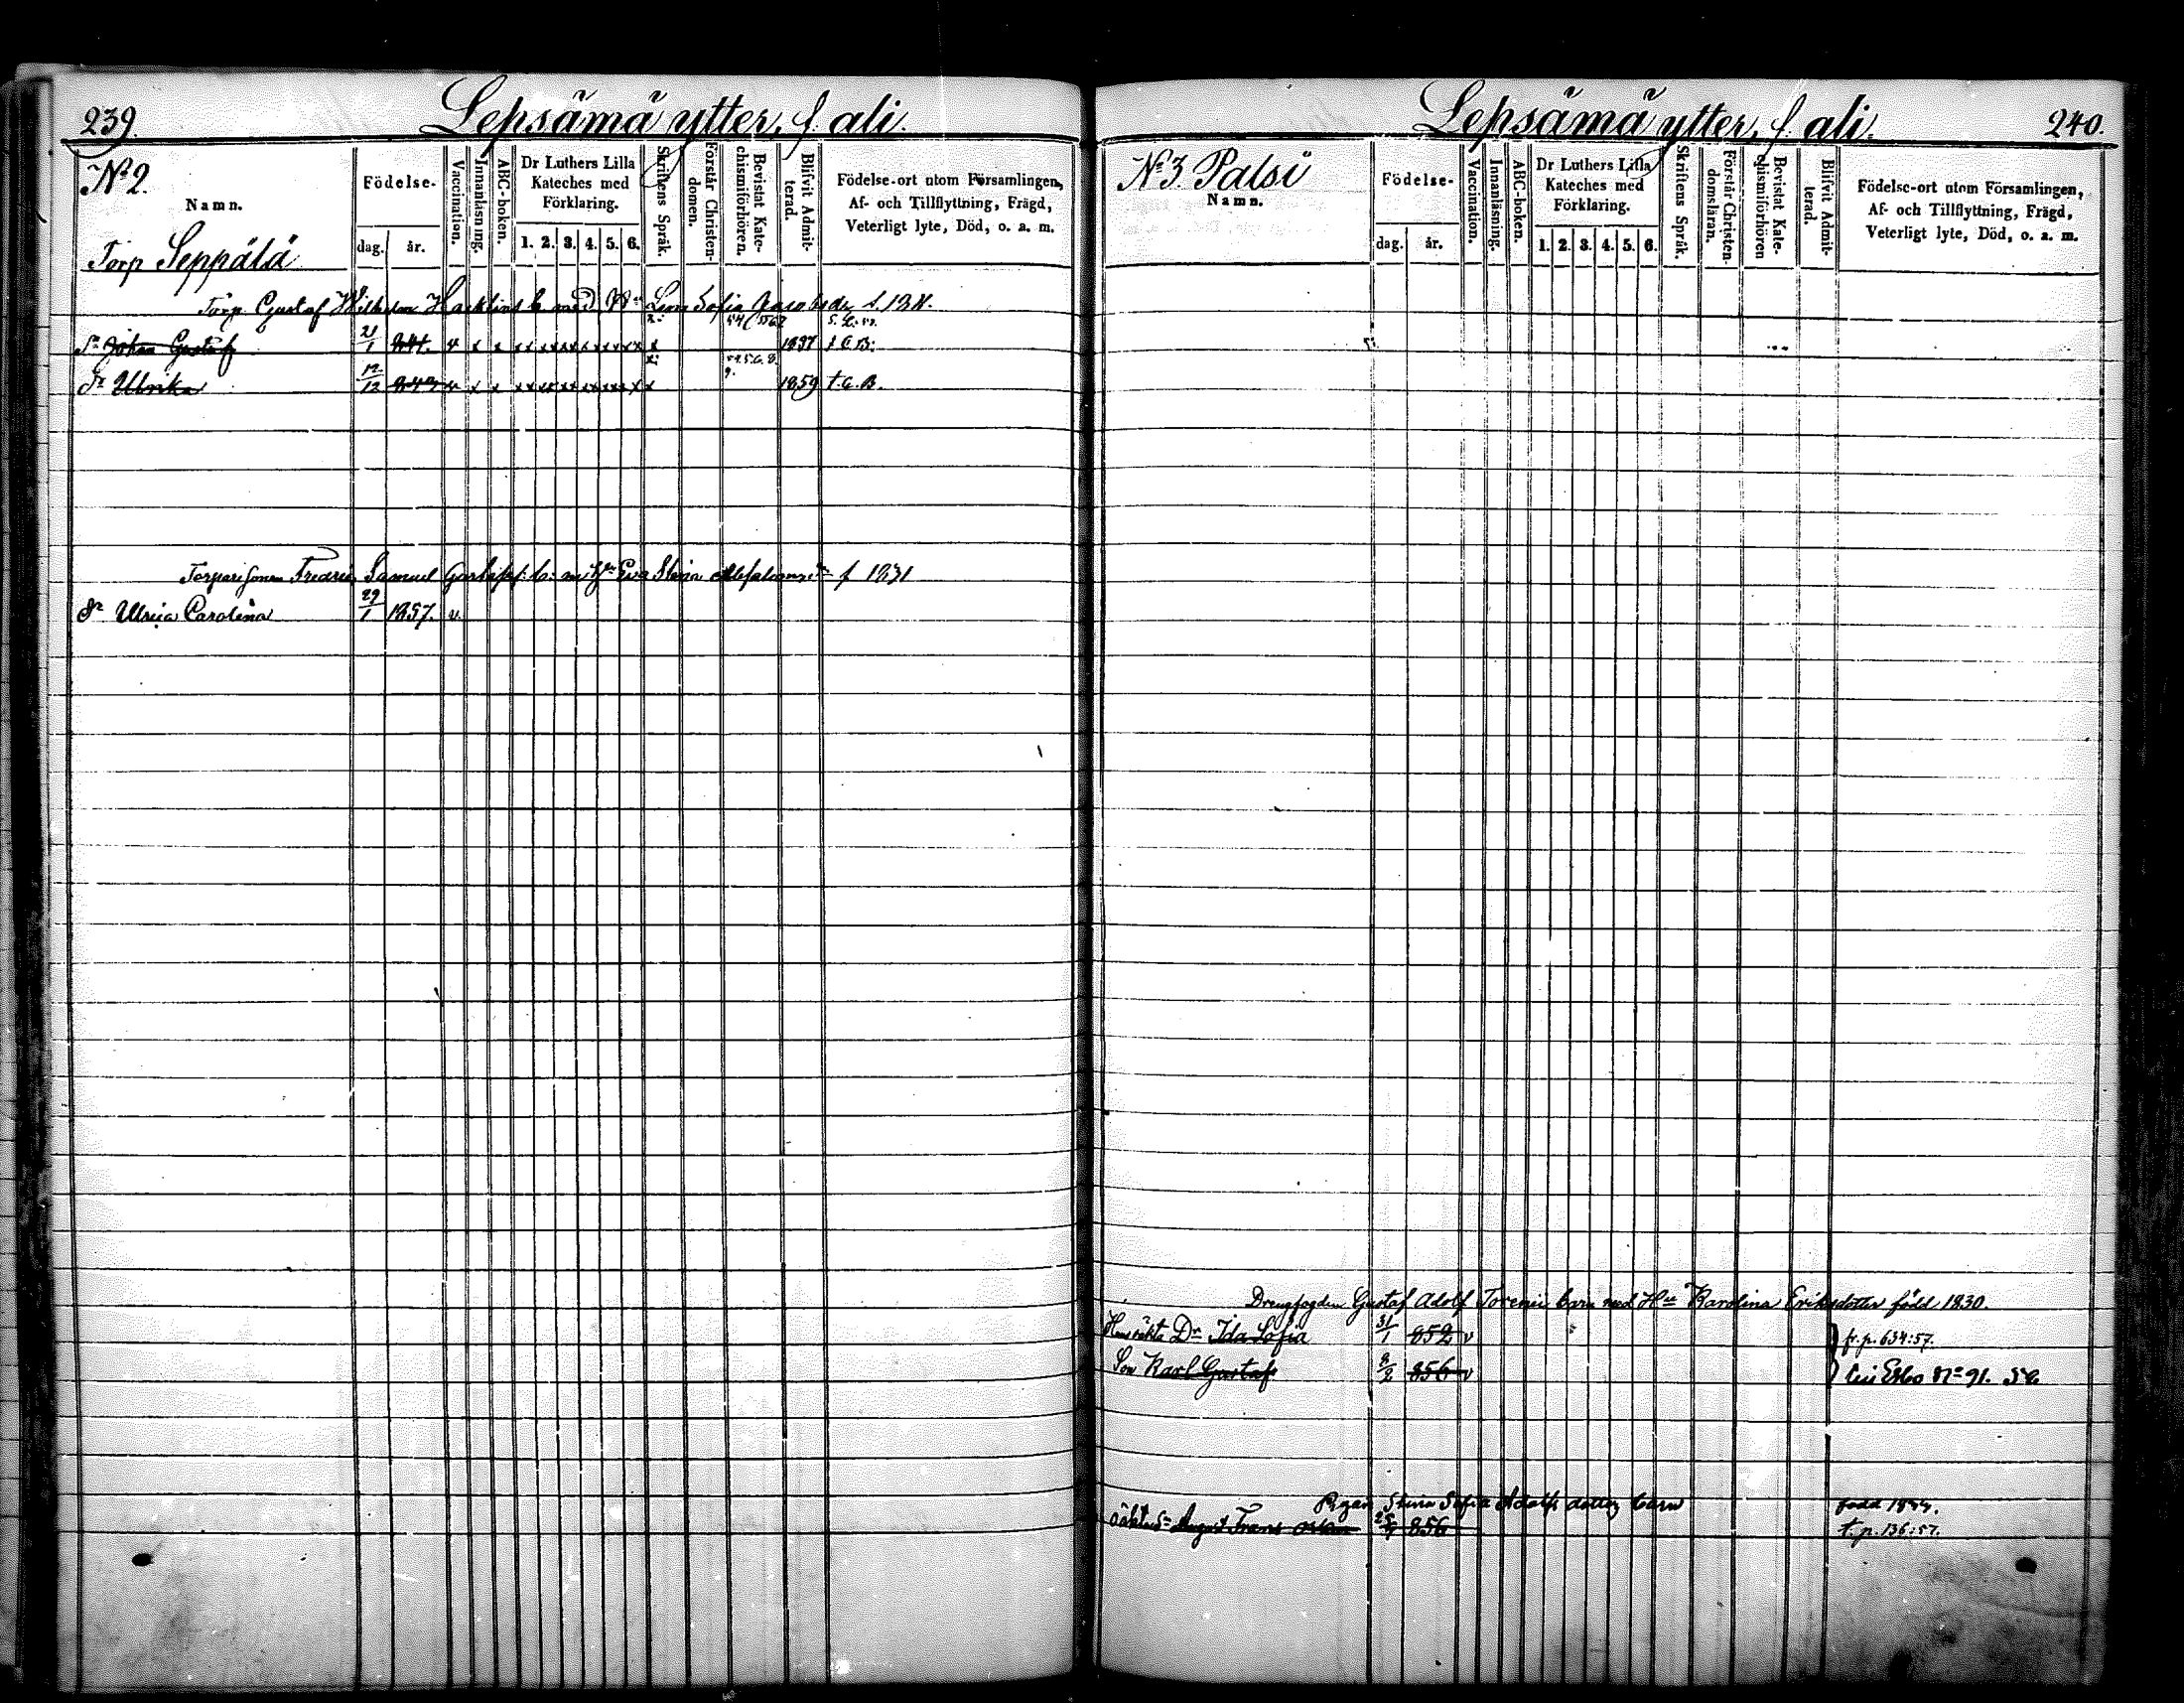 239.
Lepsämä ytter, f. ali.
No 2.
Namn.
Födelse-
dag. år.
Vaccination.
Innanläsning.
ABC-boken.
Dr Luthers Lilla
Kateches med
Förklaring.
1. 2. 3. 4. 5. 6.
Skriftens Språk.
Förstår Christen-
domen.
Bevistat Kate-
chismiförhören.
Blifvit Admit-
terad.
Födelse-ort utom Församlingen,
Af- och Tillflyttning, Frägd,
Veterligt lyte, Död, o. a. m.
Torp Seppälä
Torp. Gustaf Wilhelm b. med Sofia
Sn Johan Gustaf 21/1 841. v x x 1857
Dr Ulrika 12/12 v x x 1859 t.C.B.
Torparesonen Fredric Samuel b. m. Hu Eva Stina f 1831
Dr Ulrica Carolina 29/1 1857. v.
Lepsämä ytter, f. ali.
240.
No 3. Palsi
Namn.
Födelse-
dag. år.
Vaccination.
Innanläsning.
ABC-boken.
Dr Luthers Lilla
Kateches med
Förklaring.
1. 2. 3. 4. 5. 6.
Skriftens Språk.
Förstår Christen-
domsläran.
Bevistat Kate-
chismiförhören
Blifvit Admit-
terad.
Födelse-ort utom Församlingen,
Af- och Tillflyttning, Frägd,
Veterligt lyte, Död, o. a. m.
Drengfogden Gustaf Adolf Torenii barn med Hu Karolina Eriksdotter född 1830.
Dr Ida Sofia 31/1 852 v fr. p. 634:57.
Son Karl Gustaf 856 v Esbo No 91.
Pigan Stina Sofia Adolfs dotter barn född
oäkta Sn August Frans 856 t. p. 136:57.